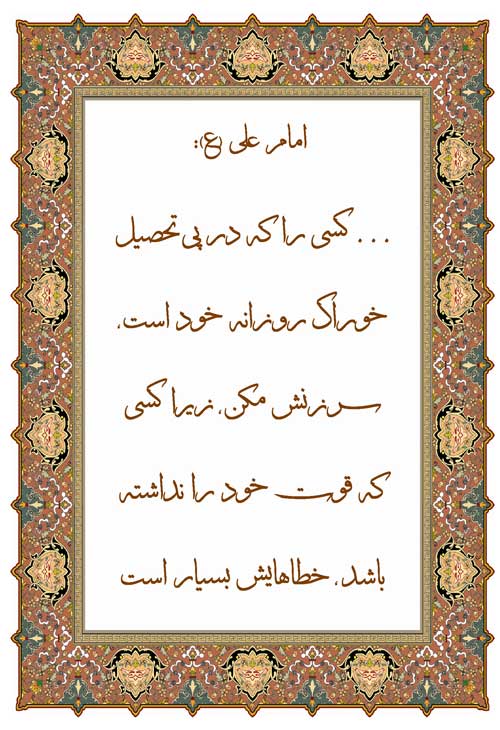 امام علی (ع):
... کسی را که در پی تحصیل
خوراک روزانه خود است،
سرزنش مکن، زیرا کسی
که قوت خود را نداشته
باشد، خطاهایش بسیار است